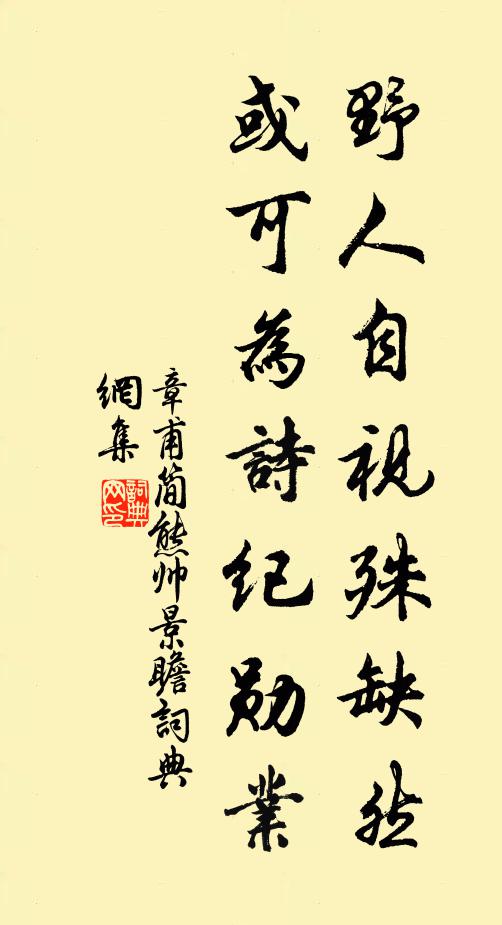 野人自視殊缺然
或可為詩紀勋業
章甫简熊帅景瞻詞典
網集
詞典
网印